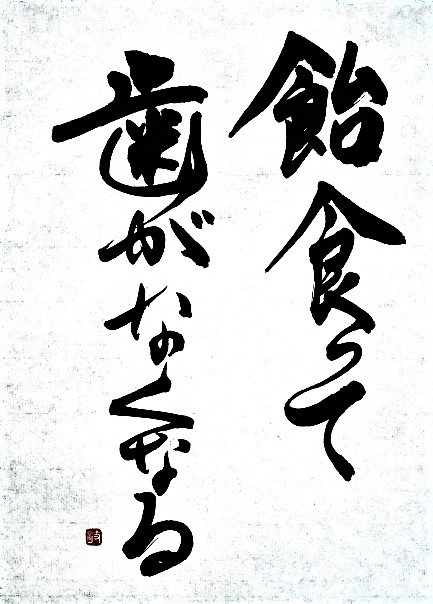 飴食って
歯がなくなる